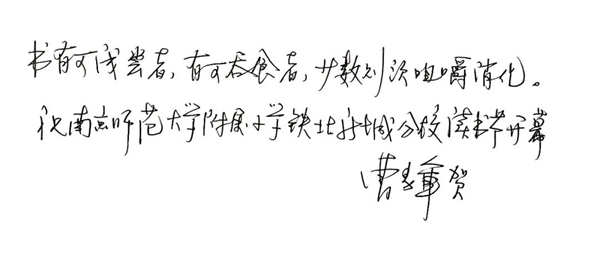 书有可浅尝者，有可吞食者，少数则须咀嚼消化。
祝南京师范大学附属小学铁北新城分校读书节开幕
曹 贺